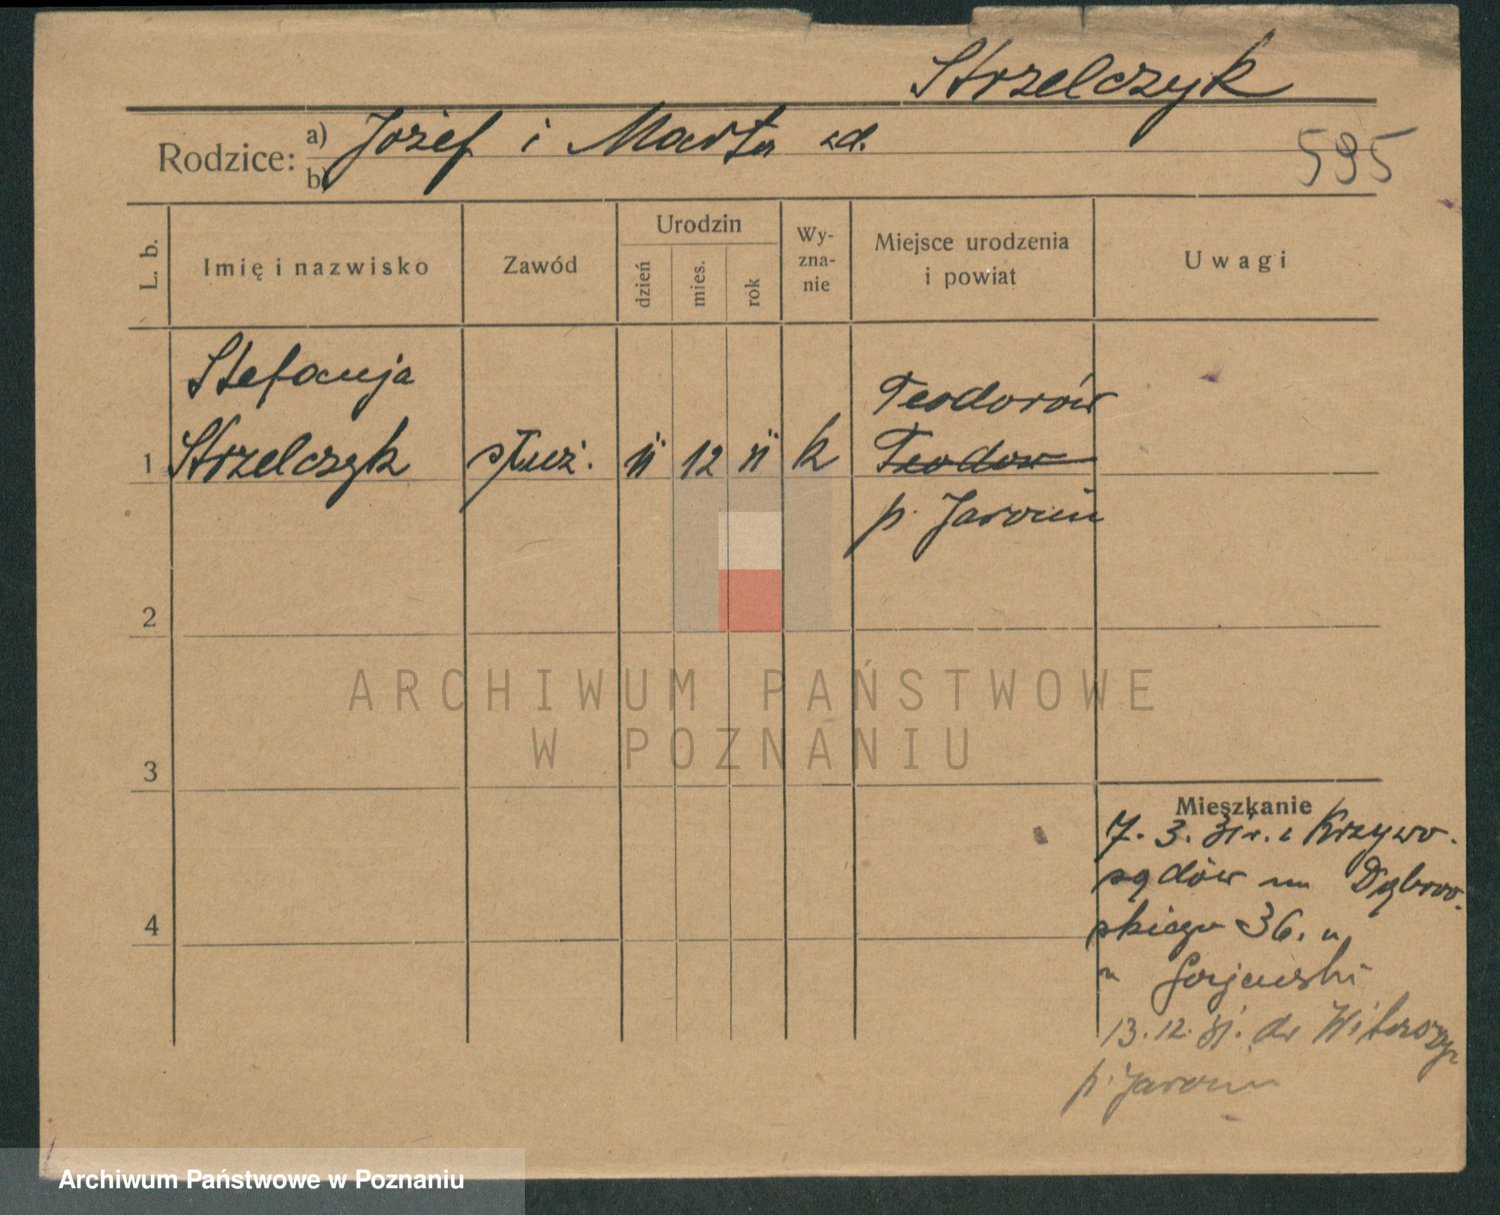 Strzelczyk
Rodzice: a) Józef i Marta zd.
b)
595
L. b.
Imię i nazwisko
Zawód
Urodzin
dzień
mies.
rok
Wy-
zna-
nie
Miejsce urodzenia
i powiat
Uwagi
Stefanja
1 Strzelczyk służ. 12 k
Teodorów
Teodow
p. Jarocin
2
3
4
Mieszkanie
7. 3. 31 r. z Krzywo-
sądów na Dąbrow-
skiego 36. u
Gajewski
13. 12. 31. do Witaszyc
p. Jarocin
ARCHIWUM PAŃSTWOWE
W POZNANIU
Archiwum Państwowe w Poznaniu